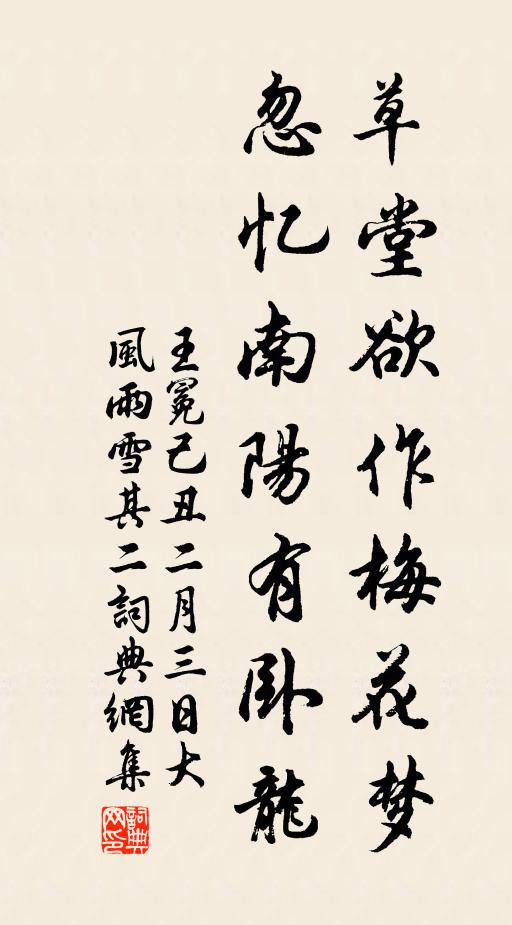 草堂欲作梅花梦
忽忆南陽有卧龍
王冕己丑二月三日大
風雨雪其二詞典網集
詞典
网印